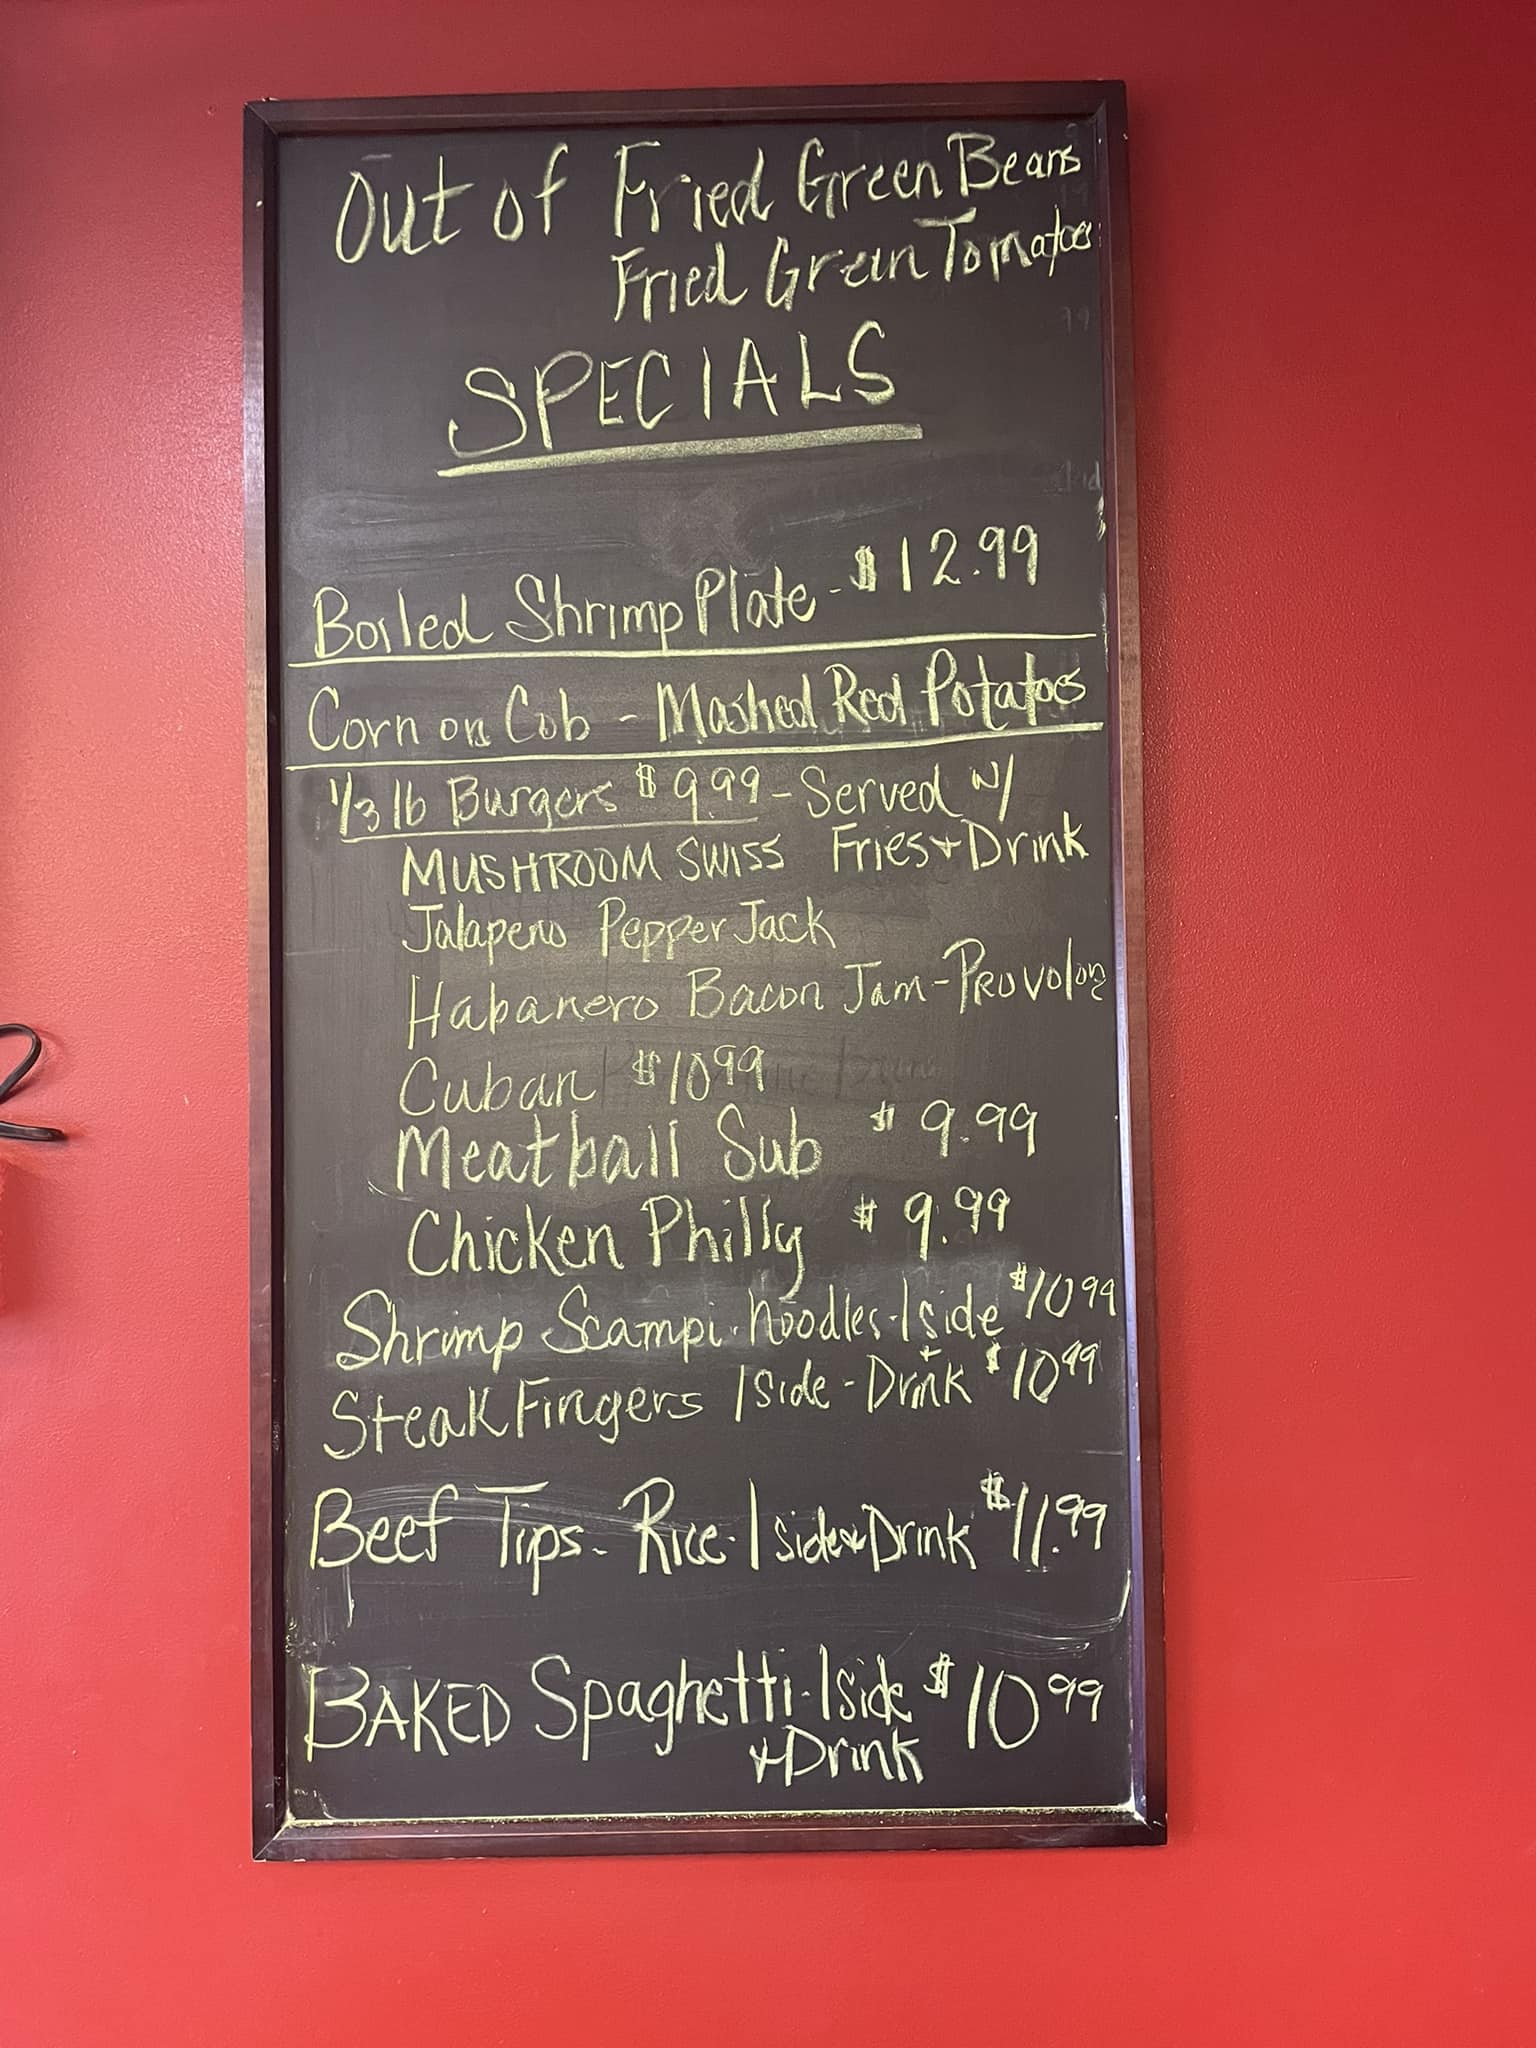 Out of Fried Green Beans
Fried Green Tomatoes
SPECIALS
Boiled Shrimp Plate - $12.99
Corn on Cob - Mashed Red Potatoes
1/3 lb Burgers $9.99 - Served w/
MUSHROOM SWISS Fries + Drink
Jalapeno Pepper Jack
Habanero Bacon Jam - Provolone
Cuban $10.99
Meatball Sub $9.99
Chicken Philly $9.99
Shrimp Scampi - Noodles - 1 side $10.99
Steak Fingers 1 side - + Drink $10.99
Beef Tips - Rice - 1 side + Drink $11.99
BAKED Spaghetti - 1 side $10.99
+ Drink